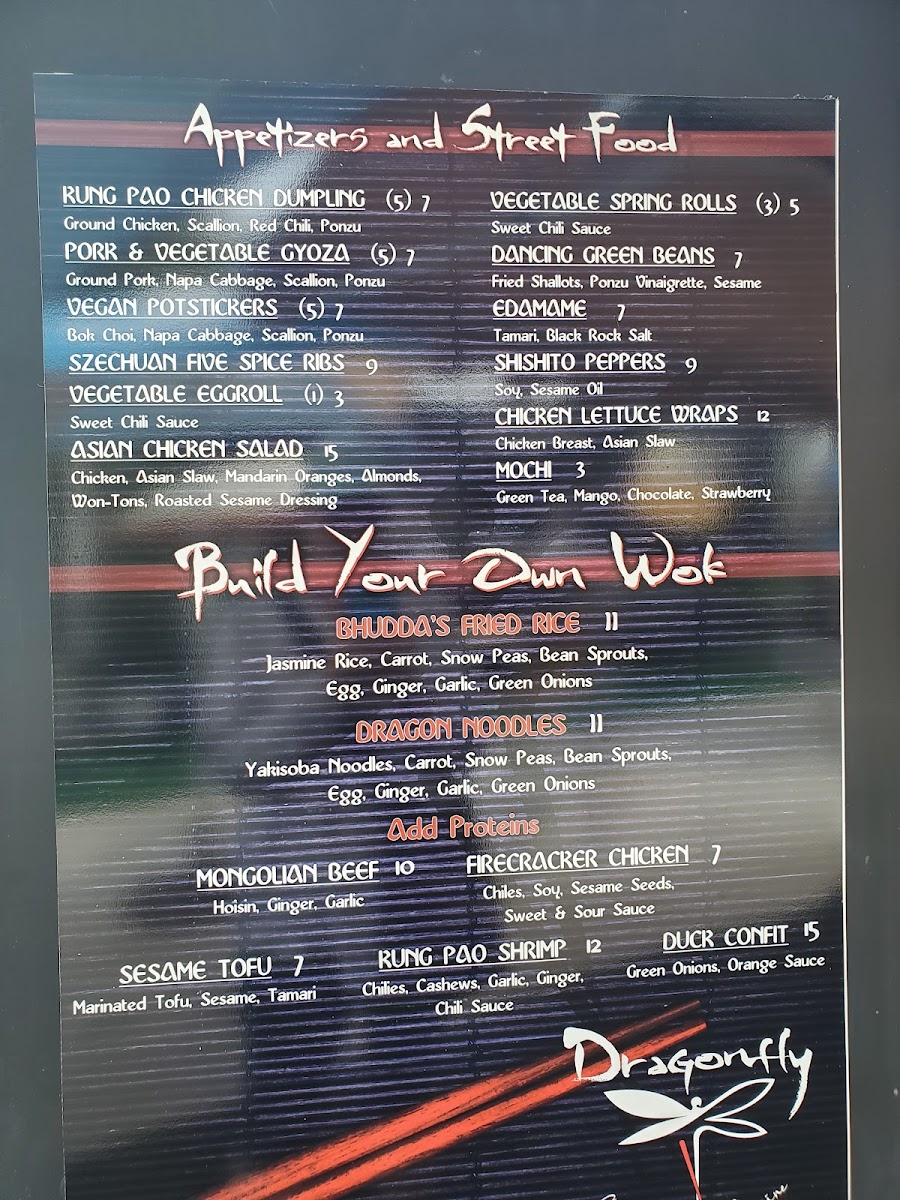 Appetizers and Street Food
KUNG PAO CHICKEN DUMPLING (5) 7
Ground Chicken, Scallion, Red Chili, Ponzu
PORK & VEGETABLE GYOZA (5) 7
Ground Pork, Napa Cabbage, Scallion, Ponzu
VEGAN POTSTICKERS (5) 7
Bok Choi, Napa Cabbage, Scallion, Ponzu
SZECHUAN FIVE SPICE RIBS 9
VEGETABLE EGGROLL (1) 3
Sweet Chili Sauce
ASIAN CHICKEN SALAD 15
Chicken, Asian Slaw, Mandarin Oranges, Almonds,
Won-Tons, Roasted Sesame Dressing
VEGETABLE SPRING ROLLS (3) 5
Sweet Chili Sauce
DANCING GREEN BEANS 7
Fried Shallots, Ponzu Vinaigrette, Sesame
EDAMAME 7
Tamari, Black Rock Salt
SHISHITO PEPPERS 9
Soy, Sesame Oil
CHICKEN LETTUCE WRAPS 12
Chicken Breast, Asian Slaw
MOCHI 3
Green Tea, Mango, Chocolate, Strawberry
Build Your Own Wok
BHUDDA'S FRIED RICE 11
Jasmine Rice, Carrot, Snow Peas, Bean Sprouts,
Egg, Ginger, Garlic, Green Onions
DRAGON NOODLES 11
Yakisoba Noodles, Carrot, Snow Peas, Bean Sprouts,
Egg, Ginger, Garlic, Green Onions
Add Proteins
MONGOLIAN BEEF 10
Hoisin, Ginger, Garlic
FIRECRACKER CHICKEN 7
Chiles, Soy, Sesame Seeds,
Sweet & Sour Sauce
SESAME TOFU 7
Marinated Tofu, Sesame, Tamari
KUNG PAO SHRIMP 12
Chilies, Cashews, Garlic, Ginger,
Chili Sauce
DUCK CONFIT 15
Green Onions, Orange Sauce
Dragonfly